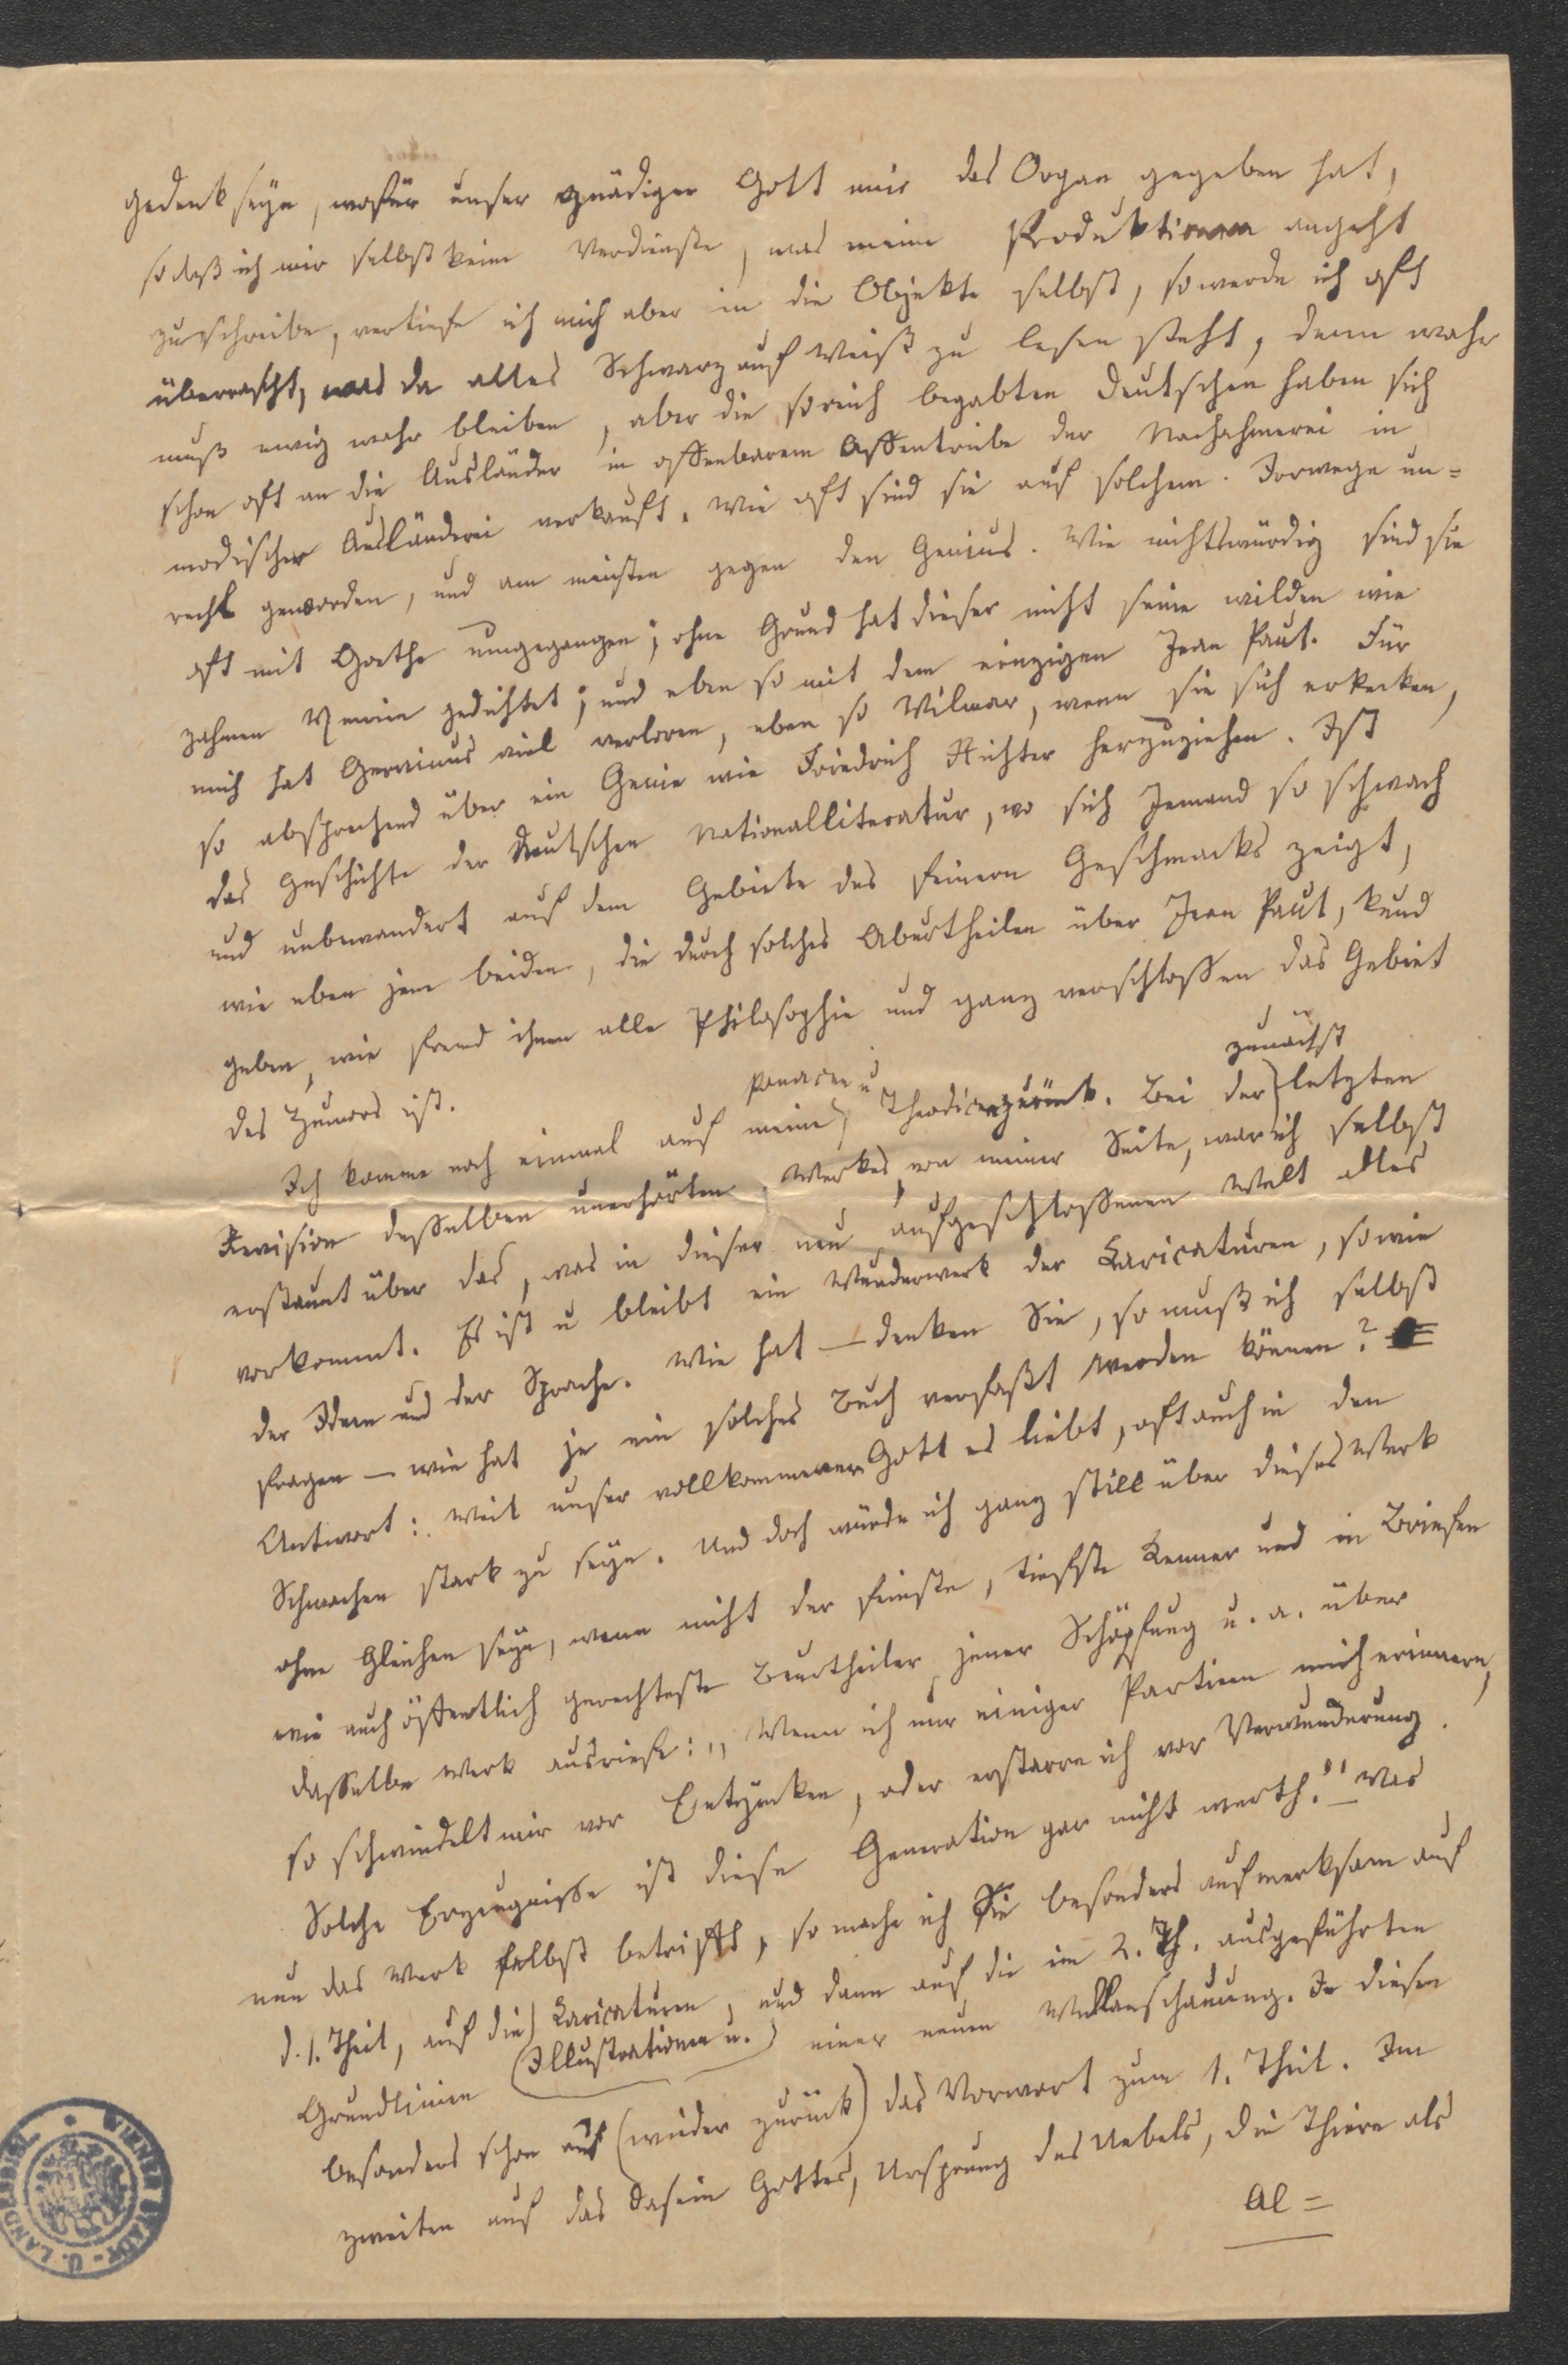 gedenk seyn, wofür unser gnädiger Gott mir das Organ gegeben hat,
so daß ich mir selbst keine Verdienste, was meine Produktionen angeht
zuschreibe, vertiefe ich mich aber in die Objekte selbst, so werde ich oft
überrascht, was da alles Schwarz auf Weiß zu lesen steht, denn wahr
muß ewig wahr bleiben, aber die so reich begabten Deutschen haben sich
schon oft an die Ausländer in offenbarem Affentriebe der Nachahmerei in
modischer Ausländerei verkauft. Wie oft sind sie auf solchem Irrwege un=
recht geworden, und am meisten gegen den Genius. Wie nichtswürdig sind sie
oft mit Goethe umgegangen; ohne Grund hat dieser nicht seine wilden wie
zahmen Xenien gedichtet; und eben so mit dem einzigen Jean Paul. Für
mich hat Gervinus viel verloren, eben so Vilmar, wenn sie sich erkecken,
so absprechend über ein Genie wie Friedrich Richter herzuziehen. Ist
das Geschichte der deutschen Nationalliteratur, wo sich Jemand so schwach
und unbewandert auf dem Gebiete des feinern Geschmacks zeigt,
wie eben jene beiden, die durch solches Aburtheilen über Jean Paul, kund
geben, wie fremd ihnen alle Philosophie und ganz verschlossen das Gebiet
des Humors ist.
zunächst
Ich komme noch einmal auf meine Theodicee zurück. Bei der letzten
Revision desselben unerhörten Werkes von meiner Seite, war ich selbst
erstaunt über das, was in dieser neu aufgeschlossenen Welt alles
vorkommt. Es ist u bleibt ein Wunderwerk der Karicaturen, sowie
der Ideen und der Sprache. Wie hat — denken Sie, so muß ich selbst
fragen — wie hat je ein solches Buch verfaßt werden können?
Antwort: Weil unser vollkommener Gott es liebt, oft auch in den
Schwachen stark zu seyn. Und doch würde ich ganz still über dieses Werk
ohne Gleichen seyn, wenn nicht der feinste, tiefste Kenner und in Briefen
wie auch öffentlich gerechteste Beurtheiler jener Schöpfung u. a. über
dasselbe Werk ausriefe: „Wenn ich nur einiger Partieen mich erinnere,
so schwindelt mir vor Entzücken, oder erstarre ich vor Verwunderung.
Solche Erzeugnisse ist diese Generation gar nicht werth!" Was
nun das Werk selbst betrifft, so mache ich Sie besonders aufmerksam auf
d. 1. Theil, auf die Karicaturen, und dann auf die im 2. Th. ausgeführten
Grundlinien (Illustrationen u.) einer neuen Weltanschauung. In diesen
besonders schon auf (wieder zurück) das Vorwort zum 1. Theil. Im
zweiten auf das Dasein Gottes, Ursprung des Uebels, die Thiere als
Al=
WIENER STADT- U. LANDESBIBL